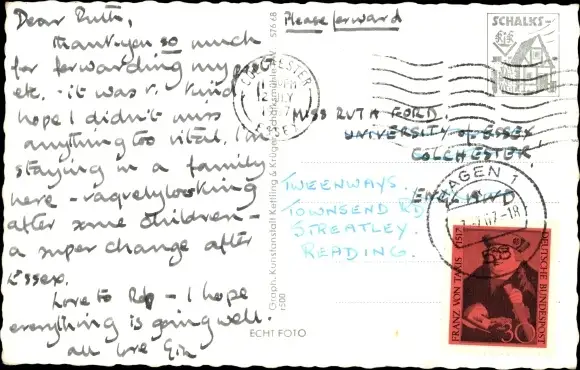 Dear Ruth,
Thank-you so much
for forwarding my post
etc. - it was v. kind
hope I didn't miss
anything too vital. I'm
staying in a family
here - vaguely looking
after some children -
a super change after
Essex.
Love to Rop - I hope
everything is going well.
all love
Graph. Kunstanstalt Kettling & Krüger, Schalksmühle i. W. 576 68
r500
ECHT FOTO
Please forward
SCHALKS-
COLCHESTER
12 JLY
ESSEX
MISS RUTH FORD.
UNIVERSITY of ESSEX
COLCHESTER!
ENGLAND
TWEENWAYS.
TOWNSEND RD
STREATLEY.
READING.
HAGEN 1
67-18
FRANZ VON TAXIS 1517
DEUTSCHE BUNDESPOST
30